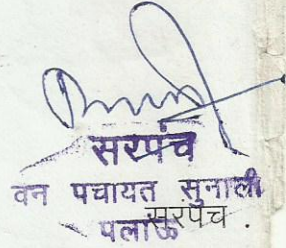 सरपंच
वन पंचायत सुनाली
पलाऊ
सरपंच .